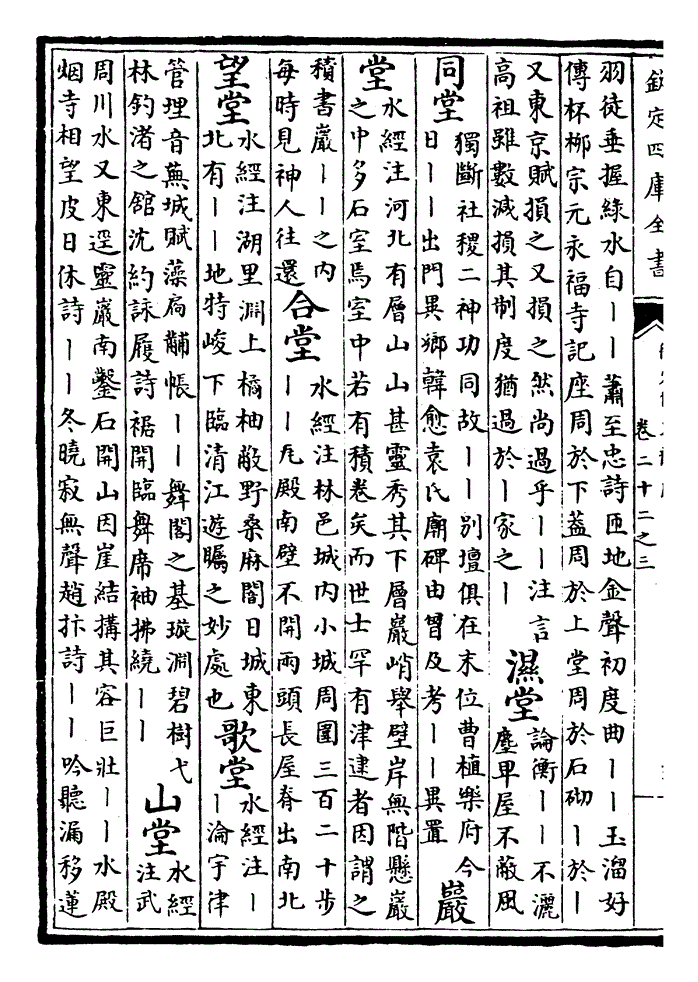 欽定四庫全書
卷二十二之三
羽徒垂握綠水自丨丨蕭至忠詩匝地金聲初度曲丨丨玉溜好
傳杯柳宗元永福寺記座周於下葢周於上堂周於石砌丨於丨
又東京賦損之又損之然尚過乎丨丨注言
高祖雖數減損其制度猶過於丨家之丨
濕堂
論衡丨丨不灑
塵卑屋不敝風
同堂
獨斷社稷二神功同故丨丨別壇俱在末位曹植樂府今
日丨丨出門異鄉韓愈袁氏廟碑由曾及考丨丨異置
巖
堂
水經注河北有層山山甚靈秀其下層巖峭舉壁岸無階懸巖
之中多石室焉室中若有積卷矣而世士罕有津逮者因謂之
積書巖丨丨之内
每時見神人往還
合堂
水經注林邑城内小城周圍三百二十步
丨丨凡殿南壁不開兩頭長屋脊出南北
望堂
水經注湖里淵上橘柚蔽野桑麻闇日城東
北有丨丨地特峻下臨清江遊矚之妙處也
歌堂
水經注丨
丨淪宇律
管埋音蕪城賦藻扃黼帳丨丨舞閣之基璇淵碧樹弋
林釣渚之館沈約詠履詩裾開臨舞席袖拂繞丨丨
山堂
水經
注武
周川水又東逕靈巖南鑿石開山因崖結搆其容巨壯丨丨水殿
烟寺相望皮日休詩丨丨冬曉寂無聲趙抃詩丨丨吟聽漏移蓮